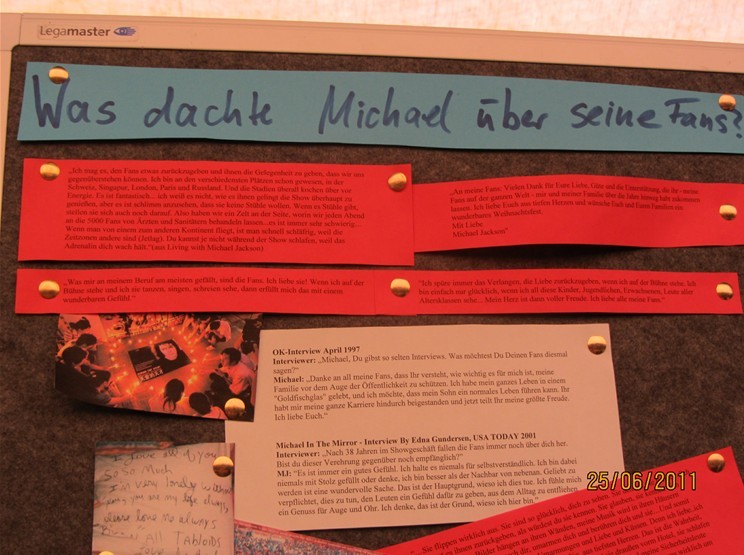 Legamaster
Was dachte Michael über seine Fans?
„Ich mag es, den Fans etwas zurückzugeben und ihnen die Gelegenheit zu geben, dass wir uns
gegenüberstehen können. Ich bin an den verschiedensten Plätzen schon gewesen, in der
Schweiz, Singapur, London, Paris und Russland. Und die Stadien überall kochen über vor
Energie. Es ist fantastisch... ich weiß es nicht, wie es ihnen gelingt die Show überhaupt zu
genießen, aber es ist schlimm anzusehen, dass sie keine Stühle wollen. Wenn es Stühle gibt,
stellen sie sich auch noch darauf. Also haben wir ein Zelt an der Seite, worin wir jeden Abend
an die 5000 Fans von Ärzten und Sanitätern behandeln lassen...es ist immer sehr schwierig....
Wenn man von einem zum anderen Kontinent fliegt, ist man schnell schläfrig, weil die
Zeitzonen anders sind (Jetlag). Du kannst je nicht während der Show schlafen, weil das
Adrenalin dich wach hält."(aus Living with Michael Jackson)
„An meine Fans: Vielen Dank für Eure Liebe, Güte und die Unterstützung, die Ihr - meine
Fans auf der ganzen Welt - mir und meiner Familie über die Jahre hinweg habt zukommen
lassen. Ich liebe Euch aus tiefem Herzen und wünsche Euch und Euren Familien ein
wunderbares Weihnachtsfest.
Mit Liebe
Michael Jackson"
„Was mir an meinem Beruf am meisten gefällt, sind die Fans. Ich liebe sie! Wenn ich auf der
Bühne stehe und ich sie tanzen, singen, schreien sehe, dann erfüllt mich das mit einem
wunderbaren Gefühl."
"Ich spüre immer das Verlangen, die Liebe zurückzugeben, wenn ich auf der Bühne stehe. Ich
bin einfach nur glücklich, wenn ich all diese Kinder, Jugendlichen, Erwachsenen, Leute aller
Altersklassen sehe... Mein Herz ist dann voller Freude. Ich liebe alle meine Fans."
OK-Interview April 1997
Interviewer: „Michael, Du gibst so selten Interviews. Was möchtest Du Deinen Fans diesmal
sagen?"
Michael: „Danke an all meine Fans, dass Ihr versteht, wie wichtig es für mich ist, meine
Familie vor dem Auge der Öffentlichkeit zu schützen. Ich habe mein ganzes Leben in einem
"Goldfischglas" gelebt, und ich möchte, dass mein Sohn ein normales Leben führen kann. Ihr
habt mir meine ganze Karriere hindurch beigestanden und jetzt teilt Ihr meine größte Freude.
Ich liebe Euch."
Michael In The Mirror - Interview By Edna Gundersen, USA TODAY 2001
Interviewer: „Nach 38 Jahren im Showgeschäft fallen die Fans immer noch über dich her.
Bist du dieser Verehrung gegenüber noch empfänglich?"
MJ: "Es ist immer ein gutes Gefühl. Ich halte es niemals für selbstverständlich. Ich bin dabei
niemals mit Stolz gefüllt oder denke, ich bin besser als der Nachbar von nebenan. Geliebt zu
werden ist eine wundervolle Sache. Das ist der Hauptgrund, wieso ich dies tue. Ich fühle mich
verpflichtet, dies zu tun, den Leuten ein Gefühl dafür zu geben, aus dem Alltag zu entfliehen
ein Genuss für Auge und Ohr. Ich denke, das ist der Grund, wieso ich hier bin"
I love all of you
So So Much
I'm very lonely
you are my life always
please love me always
All Tabloids
„Sie flippen wirklich aus. Sie sind so glücklich, dich zu
25/06/2011